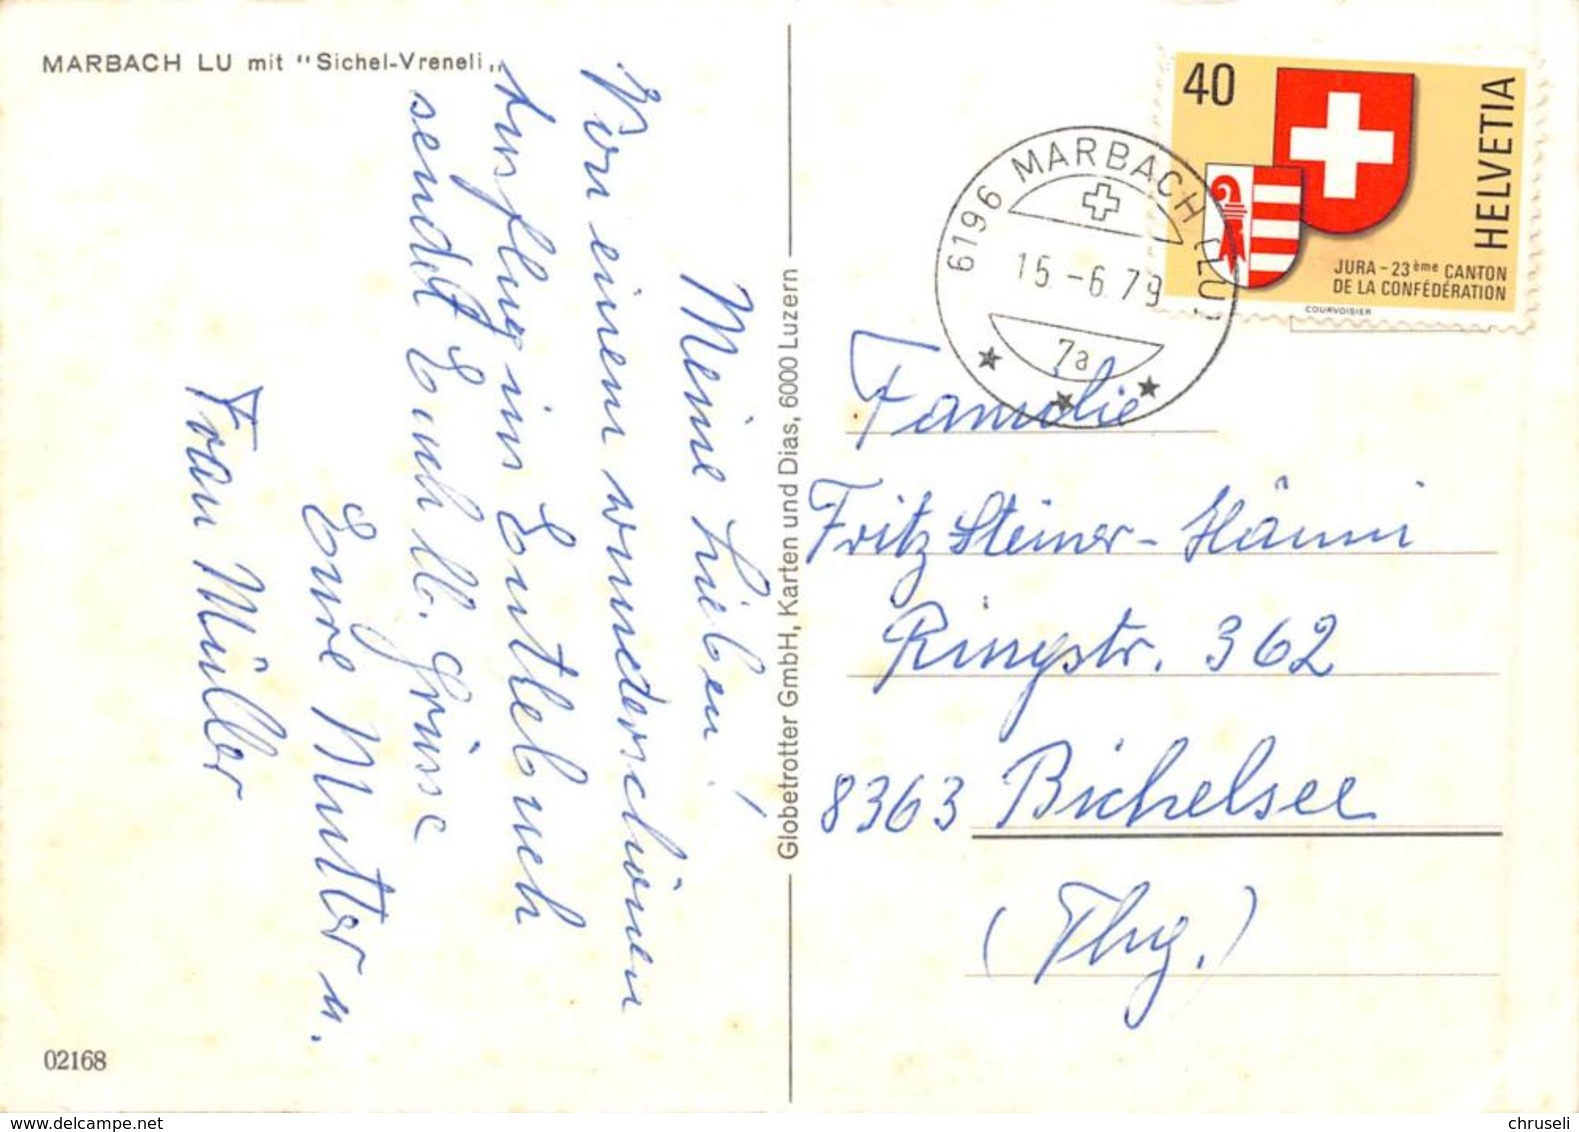 MARBACH LU mit "Sichel-Vreneli"
Meine Lieben!
Von einem wunderschönen
Ausflug ins Entlebuch
sendet Euch lb. Grüsse
Eure Mutter u.
Frau Müller
Globetrotter GmbH, Karten und Dias, 6000 Luzern
02168
40
HELVETIA
JURA - 23ème CANTON
DE LA CONFÉDÉRATION
COURVOISIER
6196 MARBACH (LU)
15.-6.79
7a
Familie
Fritz Steiner-Hänni
Ringstr. 362
8363 Bichelsee
(Thg.)
delcampe.net
chruseli